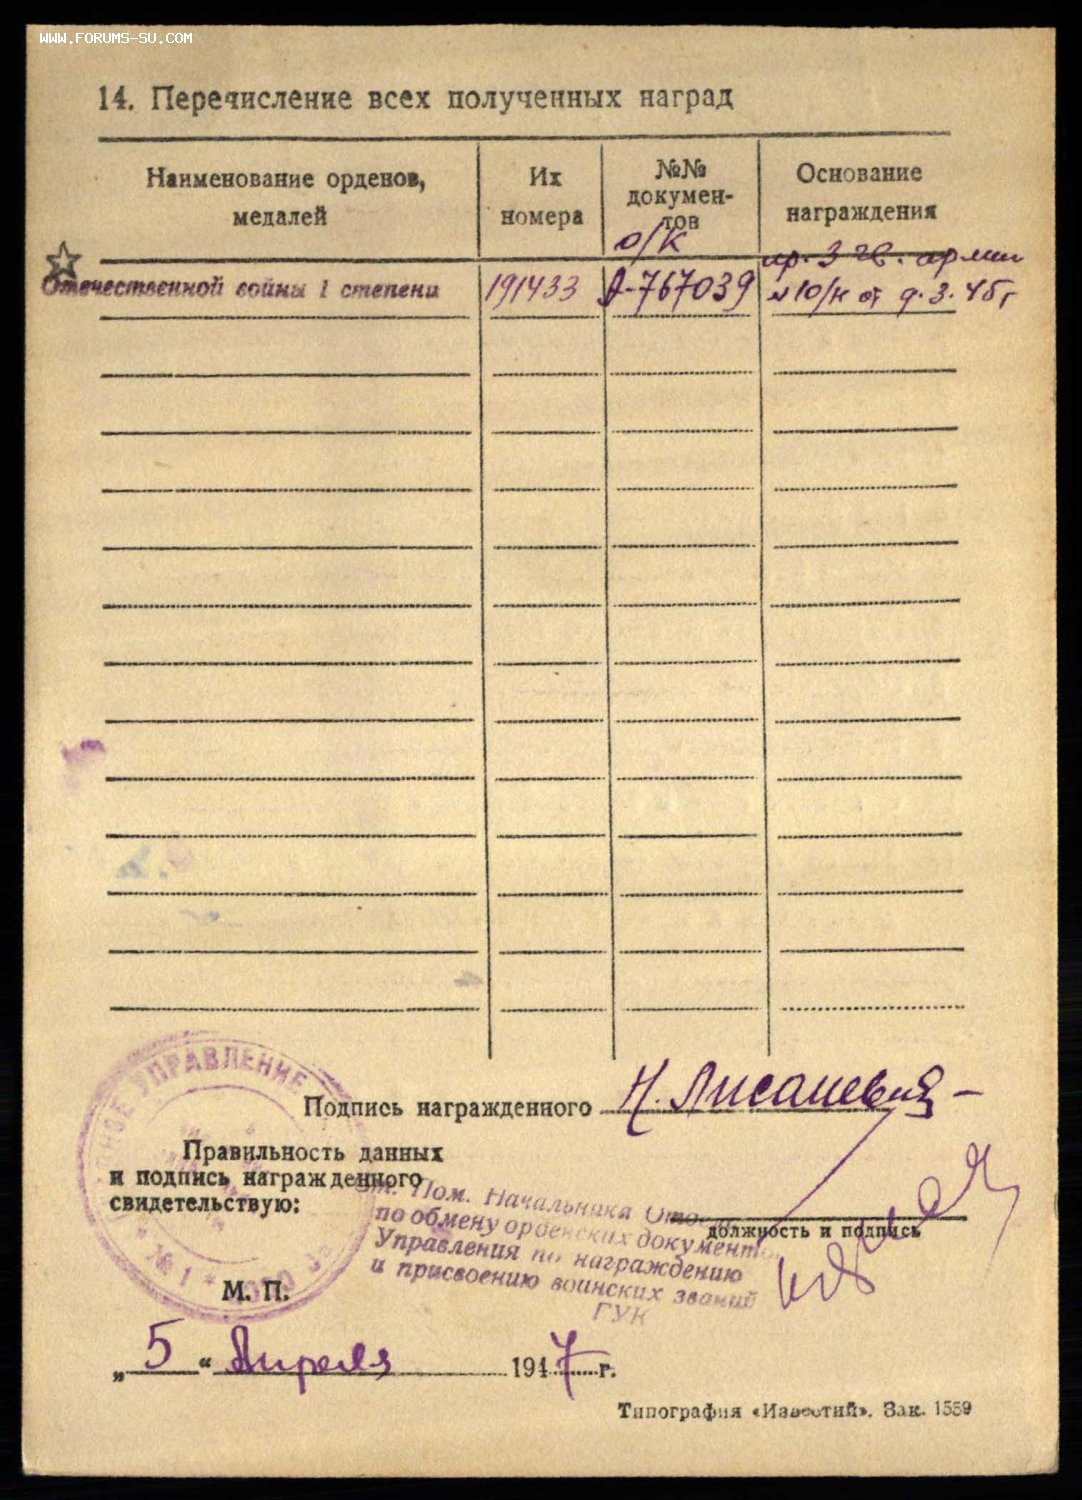 WWW.FORUMS-SU.COM
14. Перечисление всех полученных наград
Наименование орденов,
медалей
Их
номера
№№
докумен-
тов
Основание
награждения
о/к
Отечественной войны I степени
191433
А-767039
пр. 3 гв. армии
№10/н от 9.3.45г
НОЕ УПРАВЛЕНИЕ
№ 1
Подпись награжденного
Правильность данных
и подпись награжденного
свидетельствую:
Пом. Начальника
по обмену орденских документо
Управления по награждению
и присвоению воинских званий
ГУК
должность и подпись
М. П.
„5“ Апреля 1947 г.
Типография «Известий». Зак. 1559